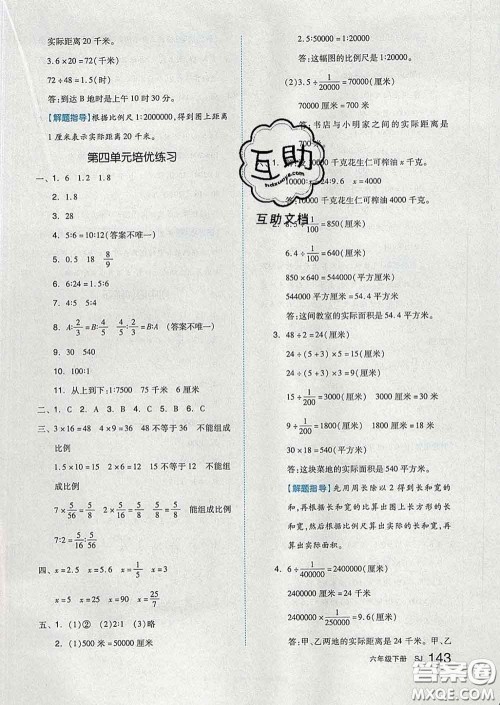 实际距离20千米。
3. 6×20=72(千米)
72÷48=1.5(时)
答:到达B地时是上午10时30分。
【解题指导】根据比例尺1:2000000,得到图上距离
1厘米表示实际距离20千米。
第四单元培优练习
一、1. 6 1.2 1.8
2. 15
3. 28
4. 5:6=10:12(答案不唯一)
5. 0.5 18 8/9
6. 6:24=1.5:6
7. 4:5 5:4
8. A:2/3=B:4/5 4/5:2/3=B:A (答案不唯一)
9. 30 540
10. 100:1
11. 从上到下:1:7500 75千米 6厘米
二、1. C 2. A 3. B 4. C 5. A
三、3×16=48 4×9=36 48不等于36 不能组成
比例
1.5×10=15 3×4=12 15不等于12 不能组成
比例
7/16×5/8 5/16 5/8 7/16 能组成比例
7:2=5/16 5/56
四、x=2.5 x=5 x=0.9
x=5 x=25 x=9/100
五、1. (1)② (2)①
2. (1)500米=50000厘米
2.5:50000=1:20000
答:这幅图的比例尺是1:20000。
(2)3.5÷1/20000=70000(厘米)
70000厘米=700米
答:书店与小明家之间的实际距离是
700米。
1. 70000千克花生仁可榨油x千克。
x=4000
答:10000千克花生仁可榨油4000千克。
2. 8.5÷1/100=850(厘米)
6.4÷1/100=640(厘米)
850×640=544000(平方厘米)
544000平方厘米=54.4平方米
答:这间教室的实际面积是54.4平方米。
3. 48÷2=24(厘米)
24÷(5+3)×5=15(厘米)
24÷(5+3)×3=9(厘米)
15÷1/200=3000(厘米) 3000厘米=30米
9÷1/200=1800(厘米) 1800厘米=18米
30×18=540(平方米)
答:这块菜地的实际面积是540平方米。
【解题指导】先用周长除以2得到长和宽的
和,再根据长和宽的比算出图上长方形的长和
宽,然后根据比例尺算出实际的长和宽,再算
出实际面积。
4. 6÷1/400000=2400000(厘米)
2400000×1/250000=9.6(厘米)
答:甲、乙两地的实际距离是24千米。甲、乙
互助
hdzuoye.com
互助文档
六年级下册 SJ 143
答案圈
MXQE.COM